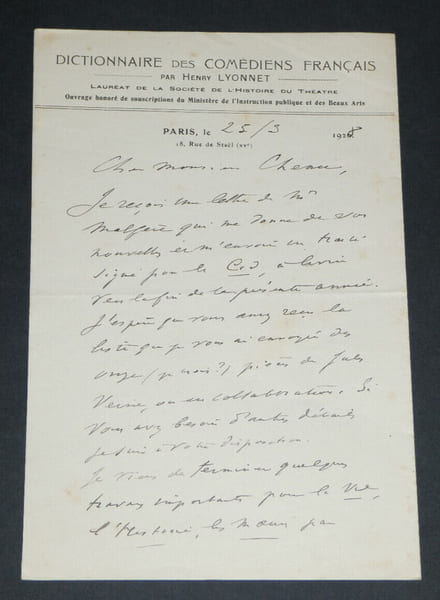 DICTIONNAIRE DES COMÉDIENS FRANÇAIS
PAR HENRY LYONNET
LAURÉAT DE LA SOCIÉTÉ DE L'HISTOIRE DU THÉATRE
Ouvrage honoré de souscriptions du Ministère de l'Instruction publique et des Beaux Arts
PARIS, le 25/3 1928
18, Rue de Staël (XVe)
Cher Monsieur
Je reçois une lettre de Mr
Malfère qui me donne de vos
nouvelles et m'envoie un traité
signé pour le Cid, à livrer
vers la fin de la présente année.
J'espère que vous avez reçu la
liste que je vous ai envoyée des
onze (je crois?) pièces de Jules
Verne, ou en collaboration. Si
vous avez besoin d'autres détails
je suis à votre disposition.
Je viens de terminer quelques
travaux importants pour la Vie,
l'Histoire, les Mœurs par